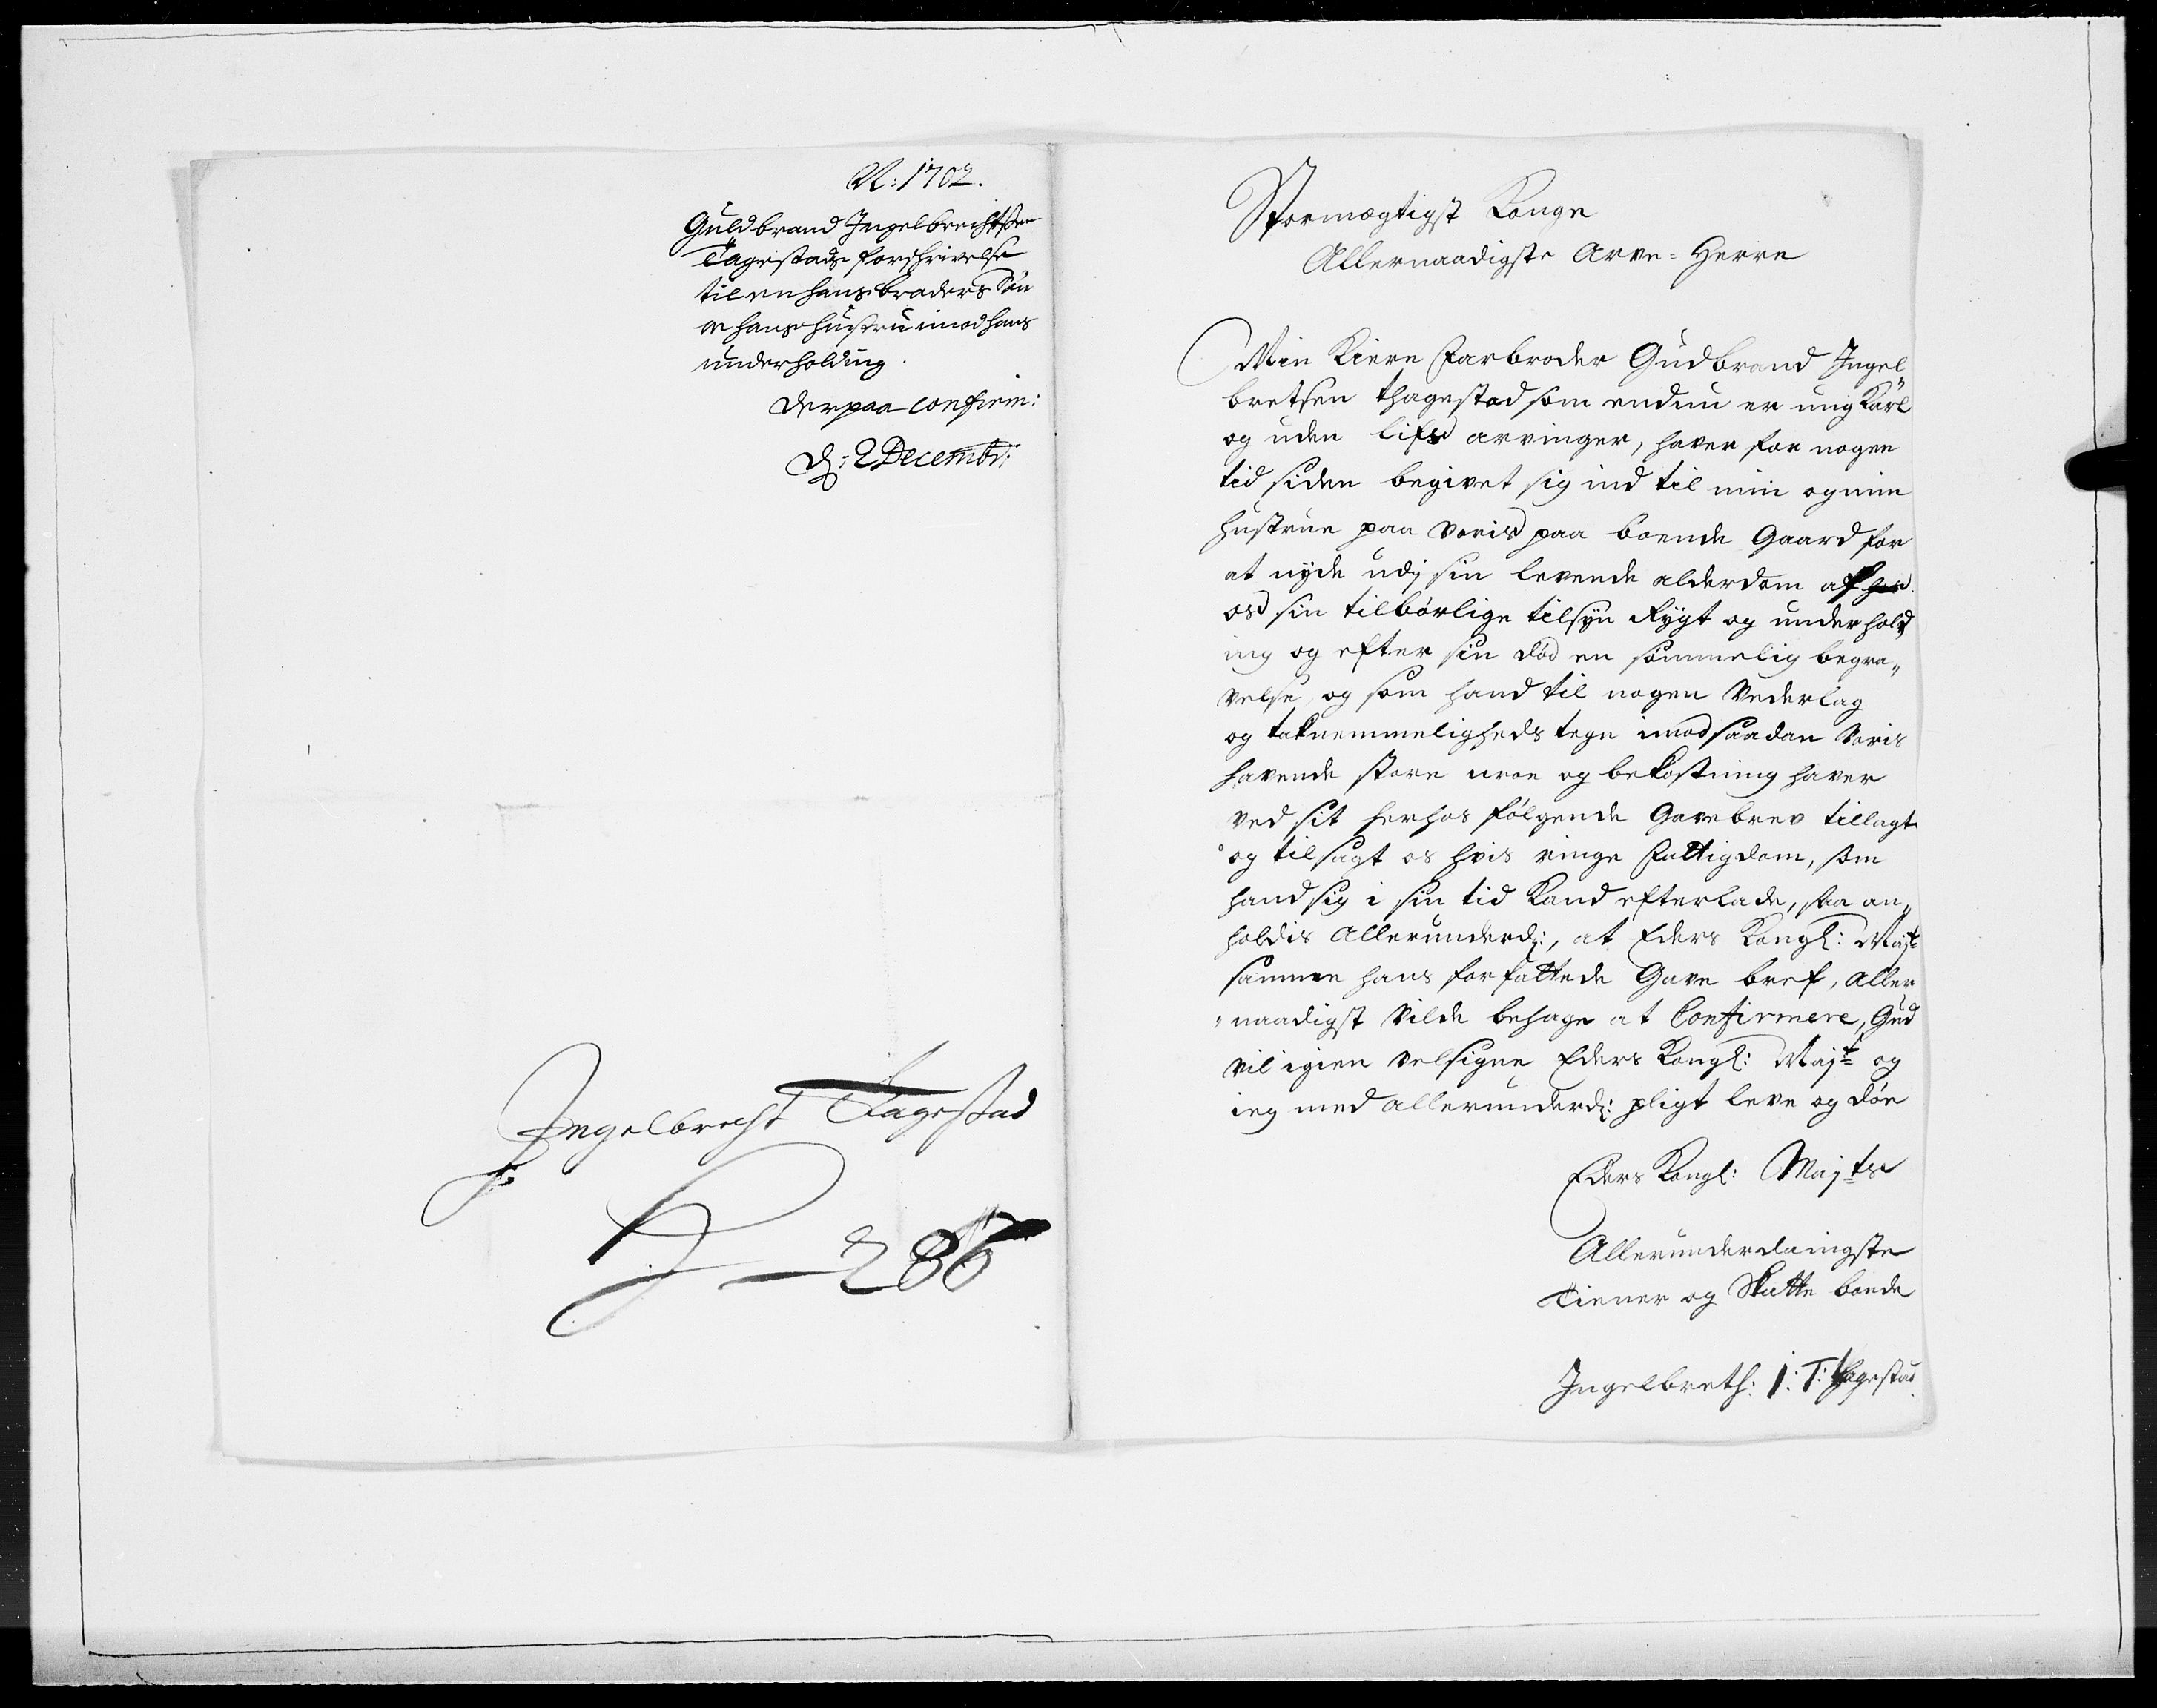 A: 1702.
Guldbrand Ingelbrechtsen
Tagestads forschrivelse
til en hans broders Søn
oc hans hustru imod hans
underholding.
Derpaa confirm:
D: 2 Decembr:
Ingelbrecht Tagestad
286
Stormægtigst Konge
Allernaadigste Arve-Herre
Min Kiere Farbroder Gudbrand Ingel„
bretsen Thagestad som endnu er ung Karl
og uden lifs arvinger, haver for nogen
tid siden begivet sig ind til min og min
hustrue paa voris paa boende Gaard for
at nyde udj sin levende alderdom af
os sin tilbørlige tilsyn Rygt og underhold
ing og efter sin død en sømmelig begra„
velse, og som hand til nogen Vederlag
og taknemmeligheds tegn imod saadan Voris
havende store uroe og bekostning haver
ved sit herhos følgende Gavebrev tillagt
og tilsagt os hvis ringe Fattigdom, som
hand sig i sin tid Kand efterlade, saa an„
holdis allerunderd:, at Eders Kongl: Mayt
samme hans forfattede Gave bref, aller
„naadigst Vilde behage at Confirmere, Gud
vil igien velsigne Eders Kongl: Mayt og
ieg med allerunderd: pligt leve og døe
Eders Kongl: Mayts
Allerunderdanigste
Tiener og Skatte bonde
Ingelbreth: I: T: Thagestad